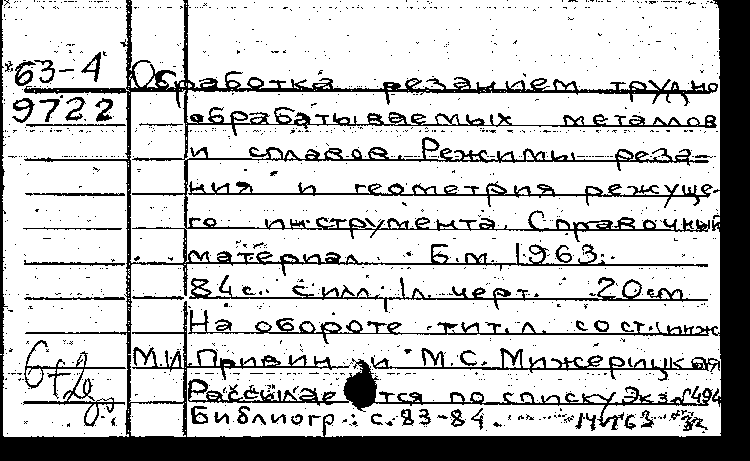 63-4 Обработка резанием трудно
9722 обрабатываемых металлов
и сплавов. Режимы реза=
ния и геометрия режуще-
го инструмента. Справочный
материал. Б.м., 1963.
84с. с илл.; 1л. черт. 20см
На обороте тит. л. сост.: инж
М.И. Привин и М.С. Мижерицкая
Рассылается по списку. Экз. №494
Библиогр.: с. 83-84.